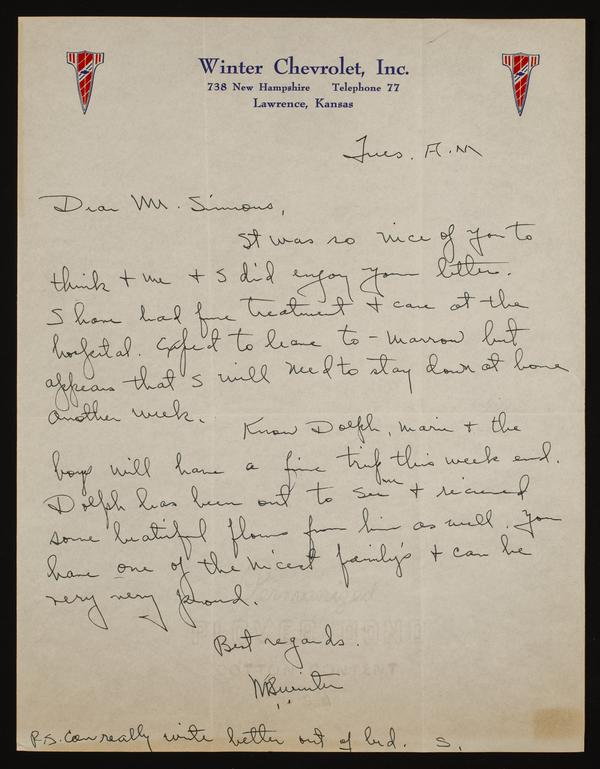 Winter Chevrolet, Inc.
738 New Hampshire Telephone 77
Lawrence, Kansas
Tues. A.M
Dear Mr. Simmons,
It was so nice of you to
think + me + I did enjoy your letter.
I have had fine treatment + care at the
hospital. Expect to leave to-morrow but
appears that I will need to stay down at home
another week.
Know Dolph, Marie + the
boys will have a fine trip this week end.
Dolph has been out to see me + received
some beatiful flowers from him as well. You
have one of the nicest family's + can be
very very proud.
Best regards.
Winter
P.S. Can really write better out of bed. S.